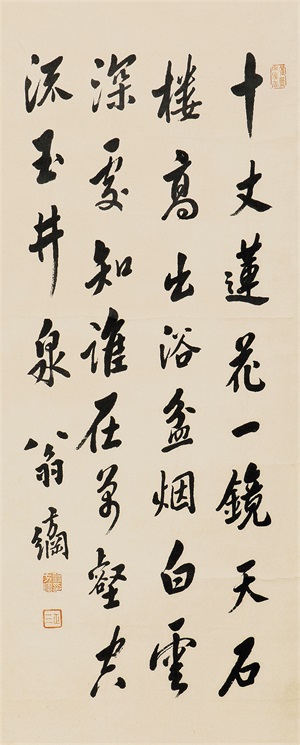 十丈蓮花一鏡天石
楼高出浴盆烟白雲
深處知誰在萬壑
流玉井泉 翁方綱